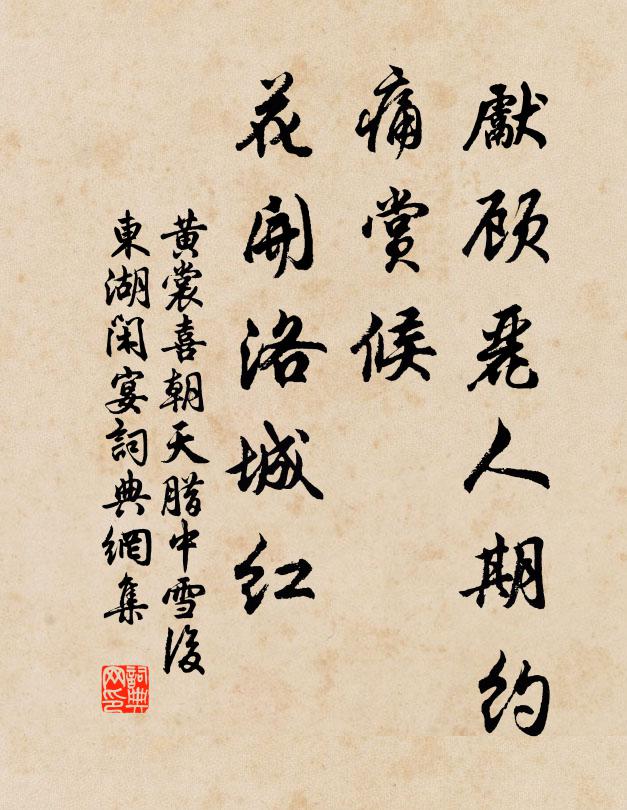 獻顾麗人期約
痛賞候
花開洛城红
黄裳喜朝天腊中雪後
東湖閑宴詞典網集
詞典
网印